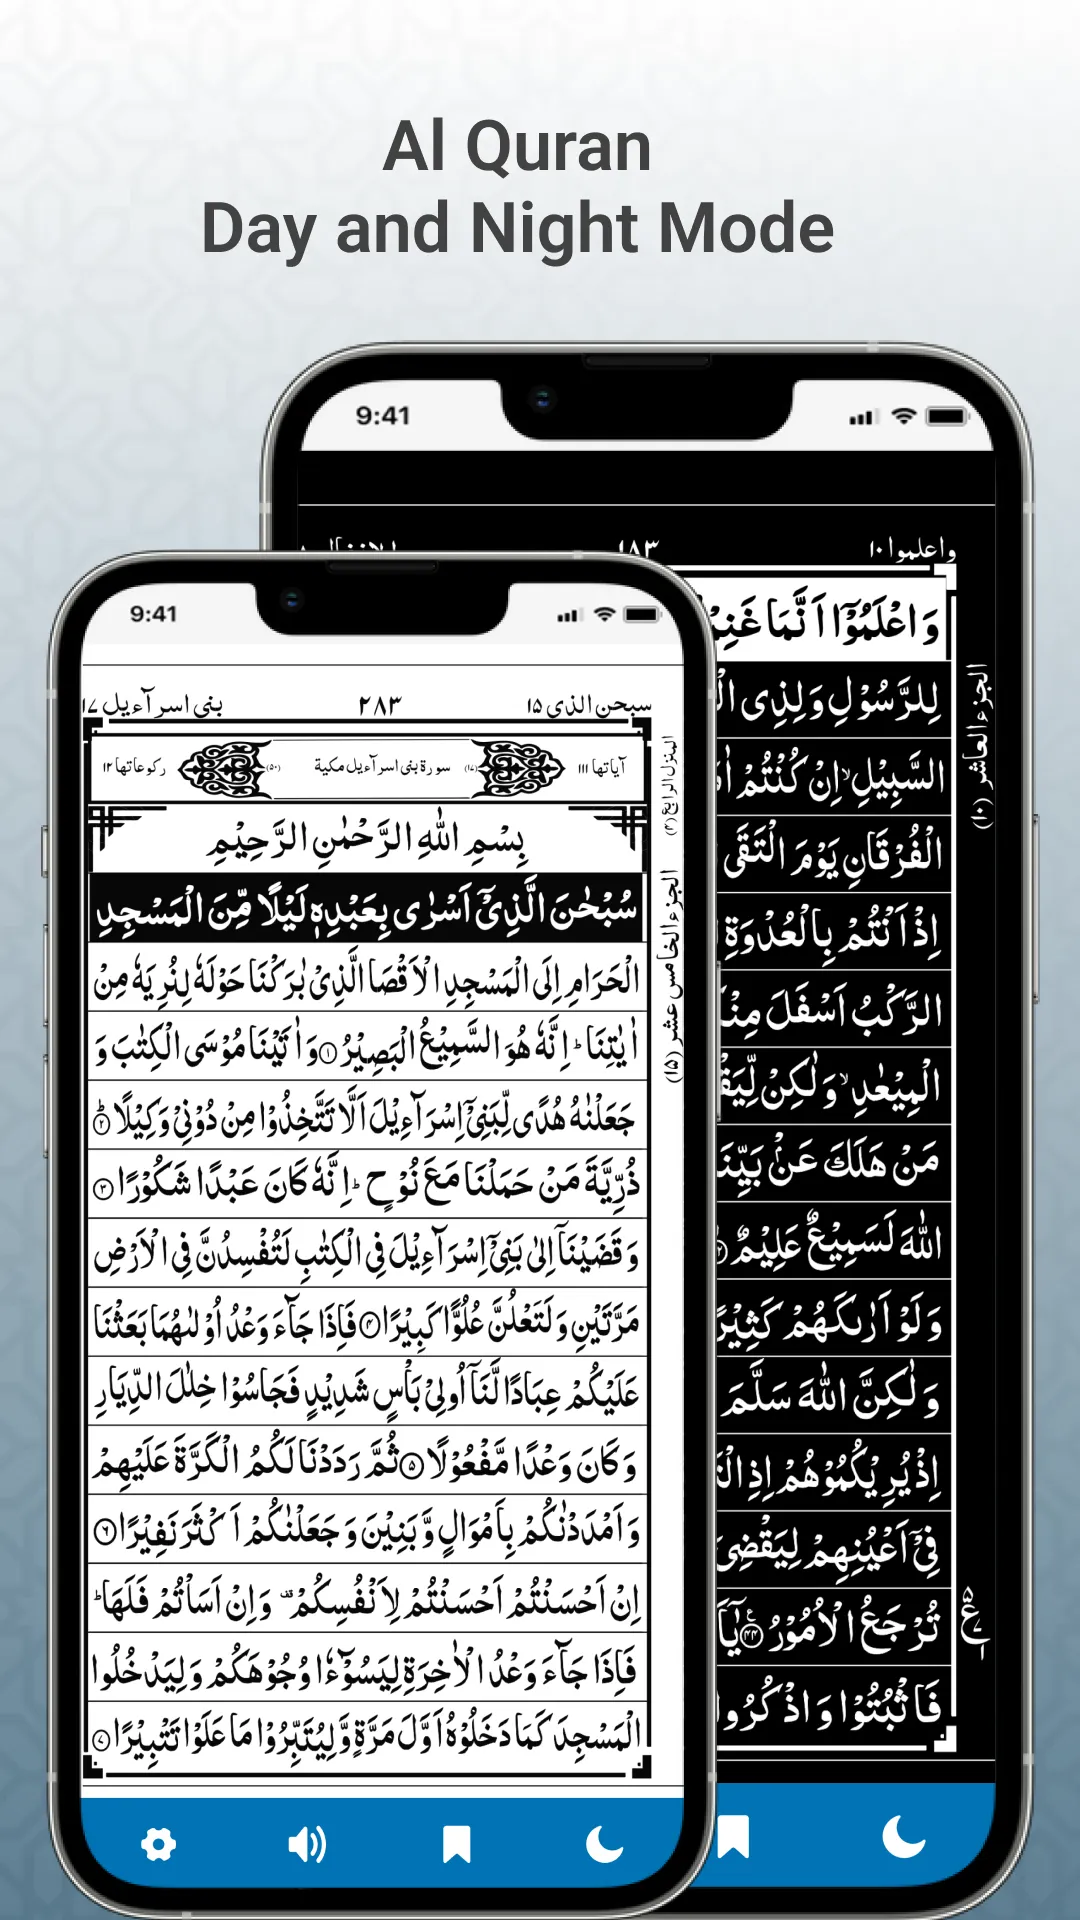 Al Quran
Day and Night Mode
9:41
واعلموا ١٠
١٨٣
الجزء العاشر (١٠)
وَاعْلَمُوْٓا اَنَّمَا غَنِمْ
لِلرَّسُوْلِ وَلِذِى
السَّبِيْلِ ۙ اِنْ كُنْتُمْ
الْفُرْقَانِ يَوْمَ الْتَقَى
اِذْ اَنْتُمْ بِالْعُدْوَةِ
الرَّكْبُ اَسْفَلَ
الْمِيْعٰدِ ۙ وَلٰكِنْ
مَنْ هَلَكَ عَنْۢ
اللّٰهَ لَسَمِيْعٌ عَلِيْمٌ
وَلَوْ اَرٰىكَهُمْ
وَلٰكِنَّ اللّٰهَ سَلَّمَ
اِذْ يُرِيْكُمُوْهُمْ اِذِ
فِيْٓ اَعْيُنِهِمْ لِيَقْضِىَ
تُرْجَعُ الْاُمُوْرُ ۴۴
فَاثْبُتُوْا وَاذْكُرُوا
9:41
سبحن الذی ١٥
٢٨٣
بنی اسرآءیل ١٧
آیاتها ١١١
(١٧) سورة بنی اسرآءیل مکیة (٥٠)
رکوعاتها ١٢
المنزل الرابع (۴)
الجزء الخامس عشر (١٥)
بِسْمِ اللّٰهِ الرَّحْمٰنِ الرَّحِيْمِ
سُبْحٰنَ الَّذِيْٓ اَسْرٰى بِعَبْدِهٖ لَيْلًا مِّنَ الْمَسْجِدِ
الْحَرَامِ اِلَى الْمَسْجِدِ الْاَقْصَا الَّذِيْ بٰرَكْنَا حَوْلَهٗ لِنُرِيَهٗ مِنْ
اٰيٰتِنَا ؕ اِنَّهٗ هُوَ السَّمِيْعُ الْبَصِيْرُ ١ وَاٰتَيْنَا مُوْسَى الْكِتٰبَ وَ
جَعَلْنٰهُ هُدًى لِّبَنِيْٓ اِسْرَآءِيْلَ اَلَّا تَتَّخِذُوْا مِنْ دُوْنِيْ وَكِيْلًا ؕ ٢
ذُرِّيَّةَ مَنْ حَمَلْنَا مَعَ نُوْحٍ ؕ اِنَّهٗ كَانَ عَبْدًا شَكُوْرًا ٣
وَقَضَيْنَآ اِلٰى بَنِيْٓ اِسْرَآءِيْلَ فِي الْكِتٰبِ لَتُفْسِدُنَّ فِي الْاَرْضِ
مَرَّتَيْنِ وَلَتَعْلُنَّ عُلُوًّا كَبِيْرًا ۴ فَاِذَا جَآءَ وَعْدُ اُوْلٰىهُمَا بَعَثْنَا
عَلَيْكُمْ عِبَادًا لَّنَآ اُولِيْ بَاْسٍ شَدِيْدٍ فَجَاسُوْا خِلٰلَ الدِّيَارِ
وَكَانَ وَعْدًا مَّفْعُوْلًا ٥ ثُمَّ رَدَدْنَا لَكُمُ الْكَرَّةَ عَلَيْهِمْ
وَاَمْدَدْنٰكُمْ بِاَمْوَالٍ وَّبَنِيْنَ وَجَعَلْنٰكُمْ اَكْثَرَ نَفِيْرًا ٦
اِنْ اَحْسَنْتُمْ اَحْسَنْتُمْ لِاَنْفُسِكُمْ ۫ وَاِنْ اَسَاْتُمْ فَلَهَا ؕ
فَاِذَا جَآءَ وَعْدُ الْاٰخِرَةِ لِيَسُوْٓءٗا وُجُوْهَكُمْ وَلِيَدْخُلُوا
الْمَسْجِدَ كَمَا دَخَلُوْهُ اَوَّلَ مَرَّةٍ وَّلِيُتَبِّرُوْا مَا عَلَوْا تَتْبِيْرًا ٧